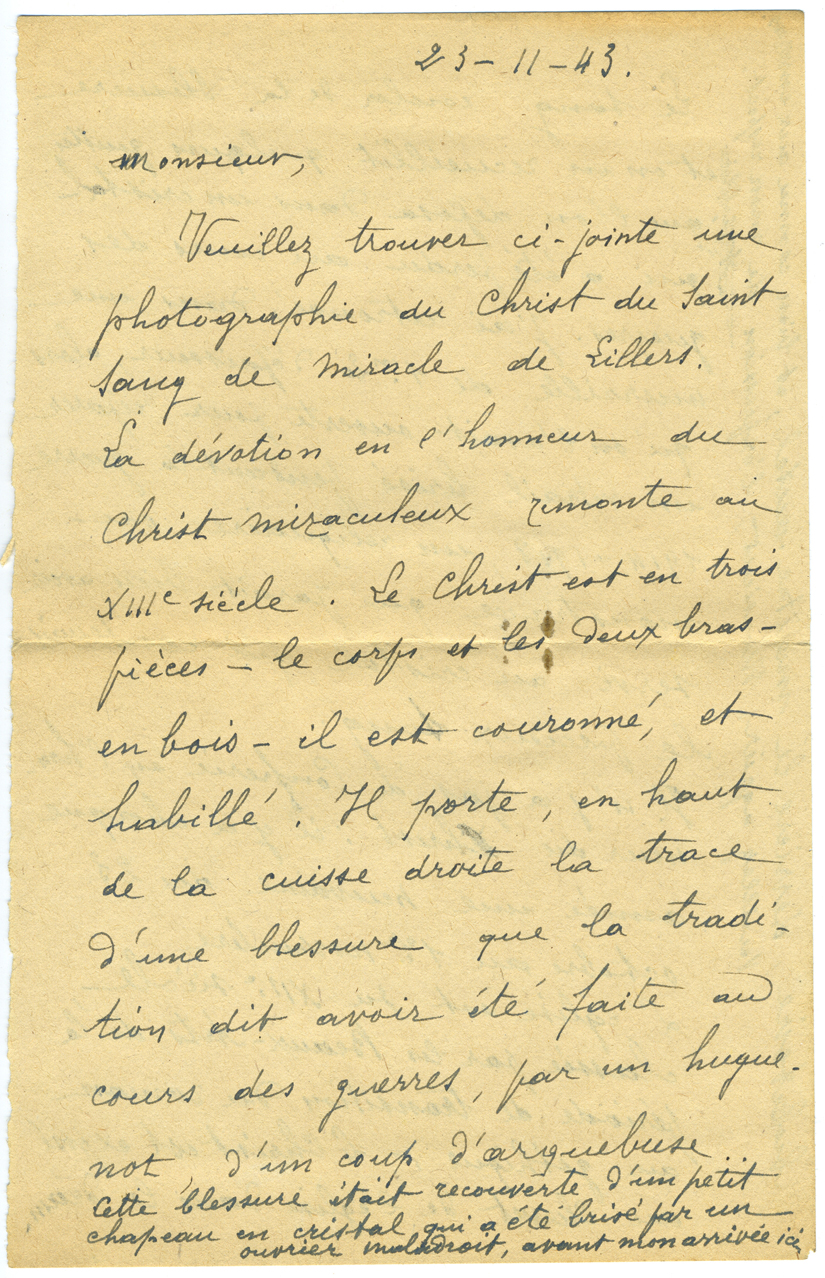 23 - 11 - 43.
Monsieur,
Veuillez trouver ci-jointe une
photographie du Christ du Saint
Sang de Miracle de Lillers.
La dévotion en l'honneur du
Christ miraculeux remonte au
XIIIe siècle. Le Christ est en trois
pièces - le corps et les deux bras -
en bois - il est couronné, et
habillé. Il porte, en haut
de la cuisse droite la trace
d'une blessure que la tradi-
tion dit avoir été faite au
cours des guerres, par un hugue-
not, d'un coup d'arquebuse...
Cette blessure était recouverte d'un petit
chapeau en cristal qui a été brisé par un
ouvrier maladroit, avant mon arrivée ici